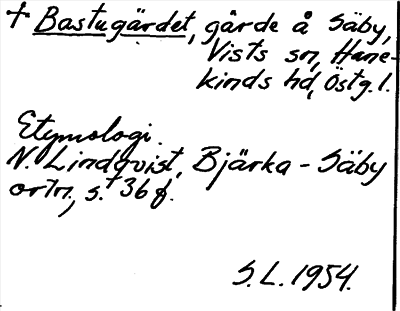 + Bastugärdet, gärde å Säby,
Vists sn, Hane-
kinds hd, Östg.l.
Etymologi.
N. Lindqvist, Bjärka-Säby
ortn., s. 36 f.
S.L. 1954.